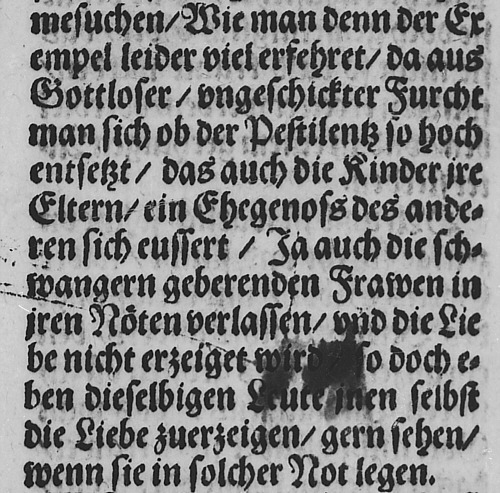 mesuchen/ Wie man denn der Ex
empel leider viel erfehret/ da aus
Gottloser/ vngeschickter Furcht
man sich ob der Pestilentz so hoch
entsetzt/ das auch die Kinder jre
Eltern/ ein Ehegenoss des ande-
ren sich eussert/ Ja auch die sch-
wangern geberenden Frawen in
jren Nöten verlassen/ vnd die Lie
be nicht erzeiget wird so doch e-
ben dieselbigen Leute jnen selbst
die Liebe zuerzeigen/ gern sehen/
wenn sie in solcher Not legen.